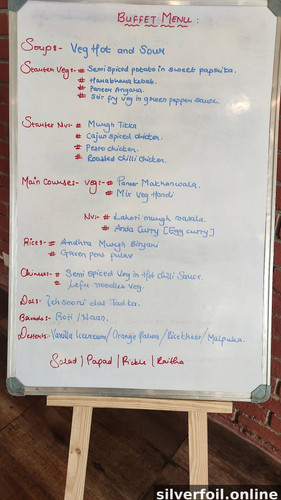 BUFFET MENU :
Soups:- Veg Hot and Sour
Starter Veg:- # Semi spiced potato in sweet paprika.
# Harabhara kebab.
# Paneer Angara.
# Stir fry veg in green pepper sauce
Starter Nv:- # Murgh Tikka
# Cajun spiced chicken.
# Pesto chicken.
# Roasted chilli chicken.
Main Courses:- veg:- # Paneer Makhanwala.
# Mix Veg Handi
Nv:- # Lahori murgh masala.
# Anda Curry [Egg curry]
Rices:- # Andhra Murgh Biryani
# Green peas pulav
Chinese:- # Semi spiced Veg in Hot chilli Sauce.
# noodles veg.
Dal:- Lehsooni dal Tadka.
Breads:- Roti / Naan.
Desserts:- Vanilla Icecream / Orange / / Malpuha.
Salad | Papad | Pickle | Raitha
silverfoil.online